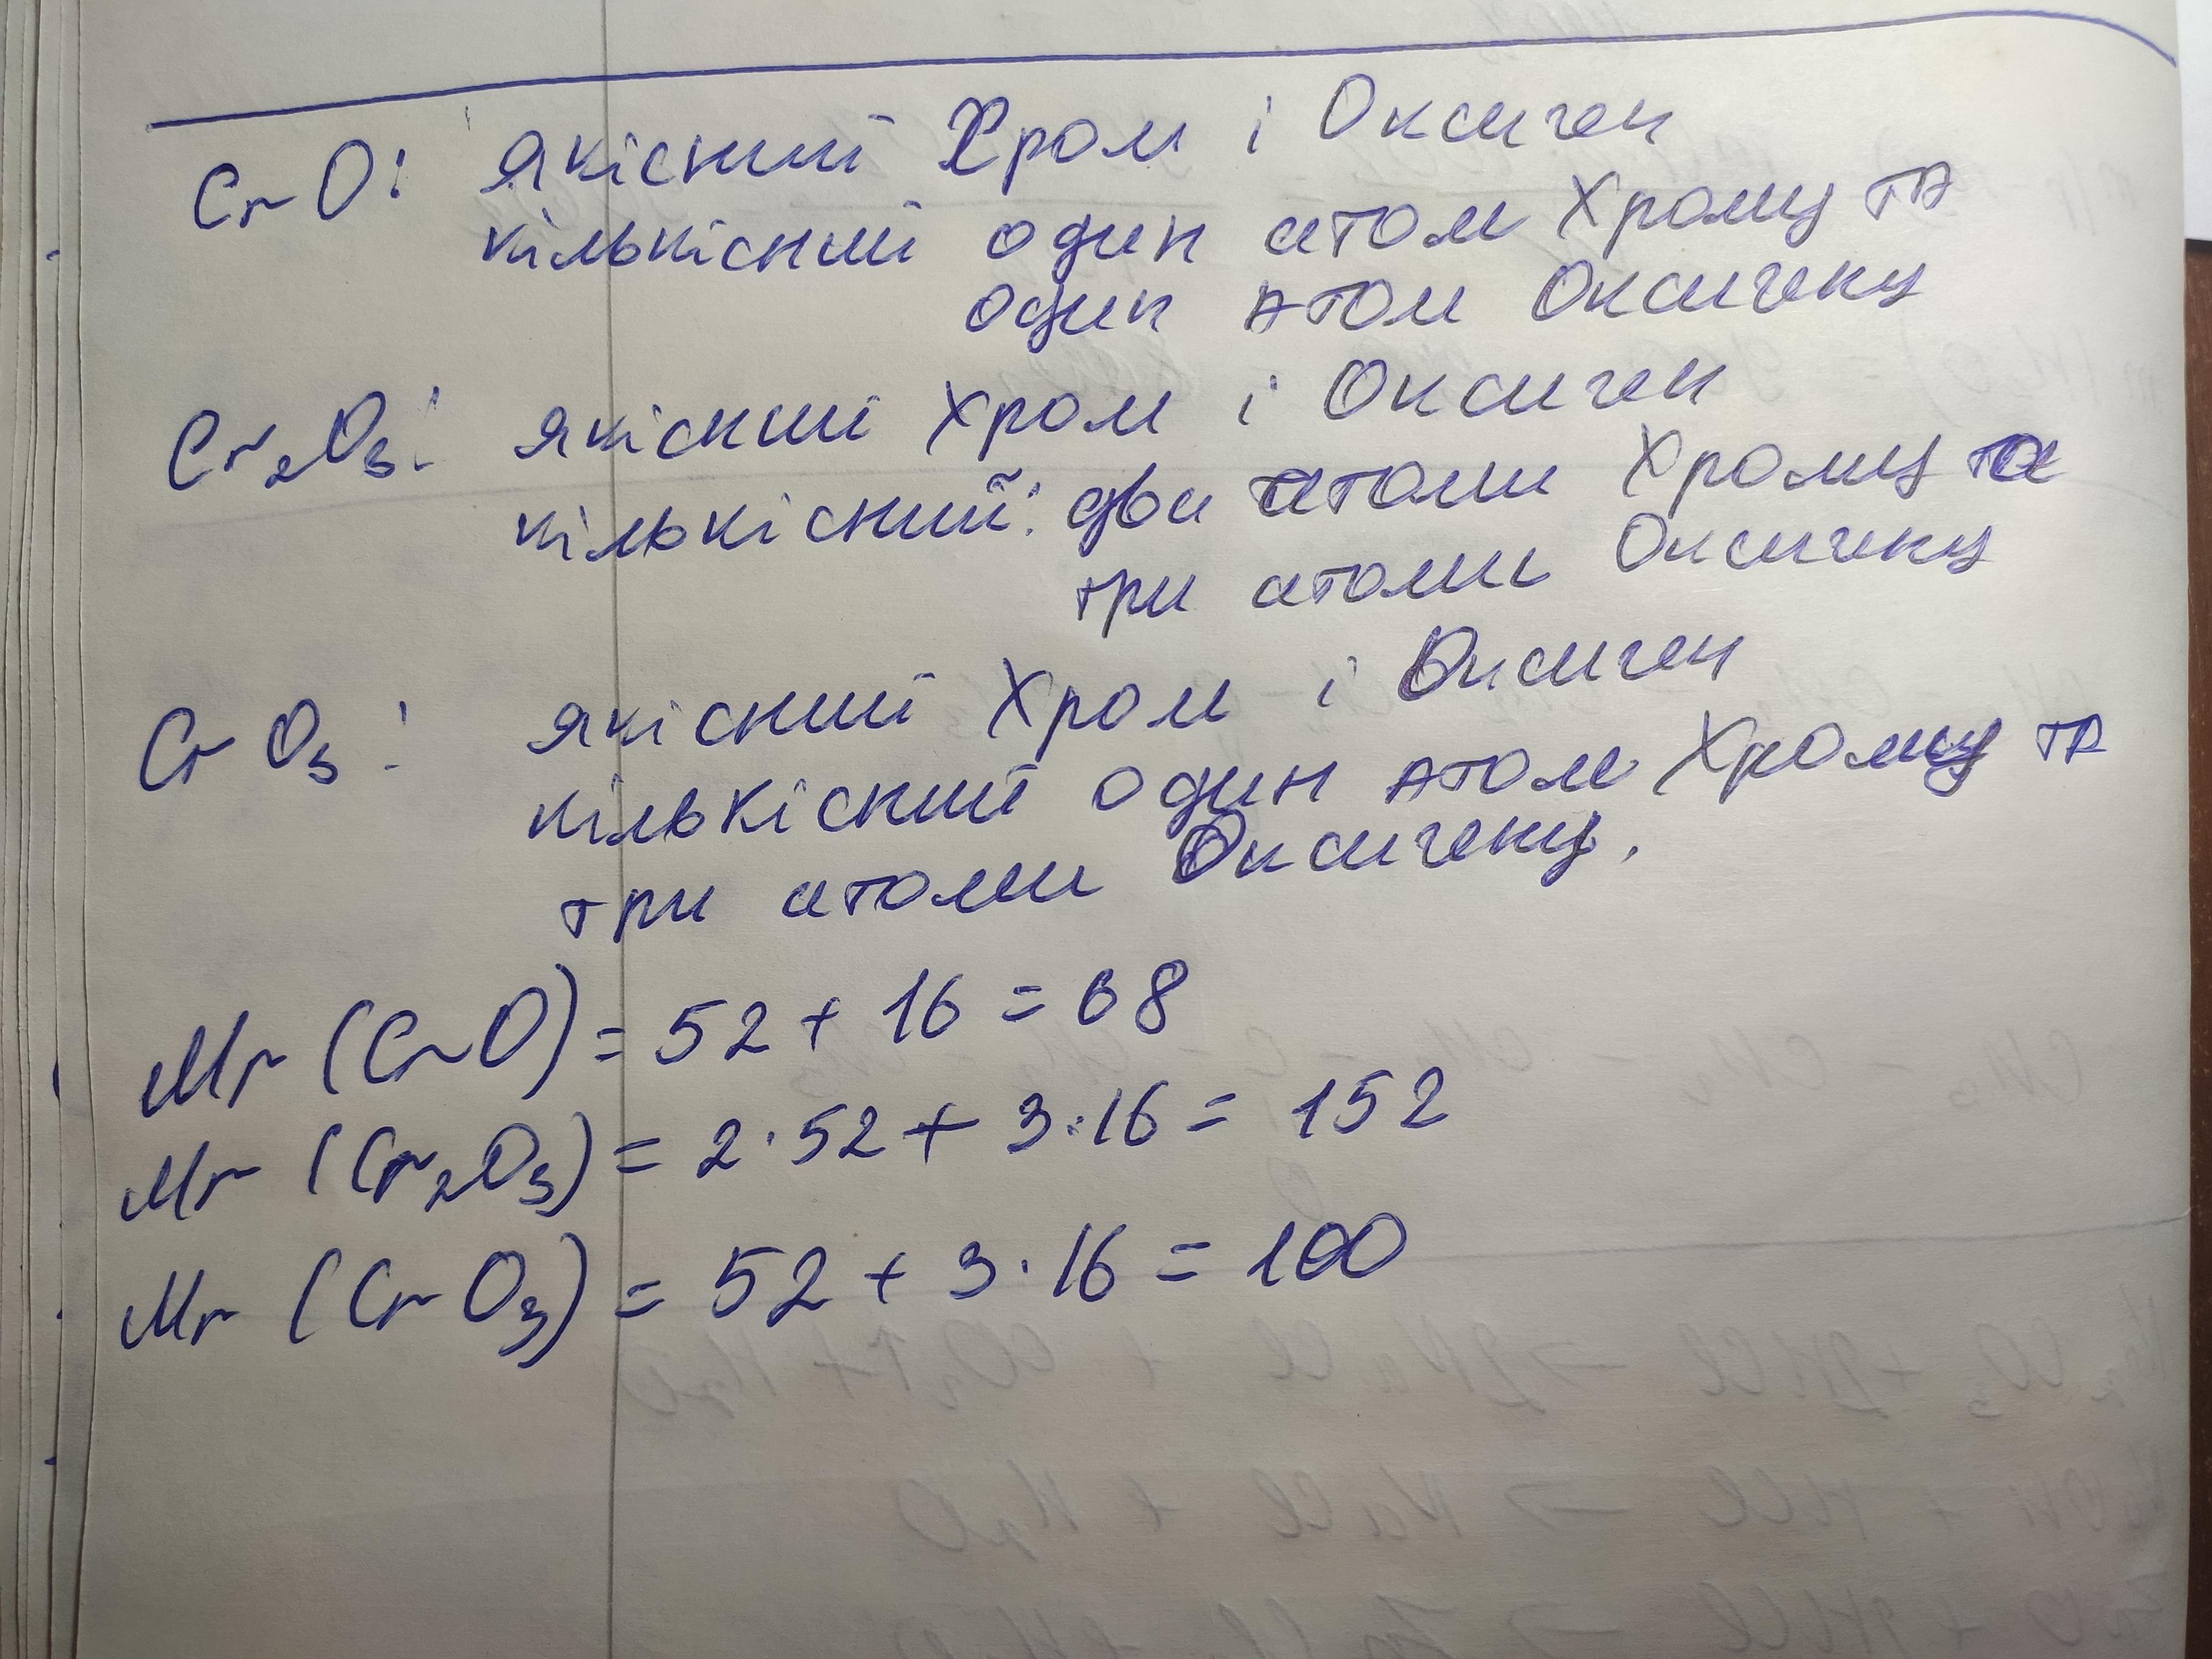 CrO: якісний Хром і Оксиген
кількісний один атом Хрому та
один атом Оксигену
Cr₂O₃: якісний Хром і Оксиген
кількісний: два атоми Хрому та
три атоми Оксигену
CrO₃: якісний Хром і Оксиген
кількісний один атом Хрому та
три атоми Оксигену.
Mr (CrO) = 52 + 16 = 68
Mr (Cr₂O₃) = 2·52 + 3·16 = 152
Mr (CrO₃) = 52 + 3·16 = 100